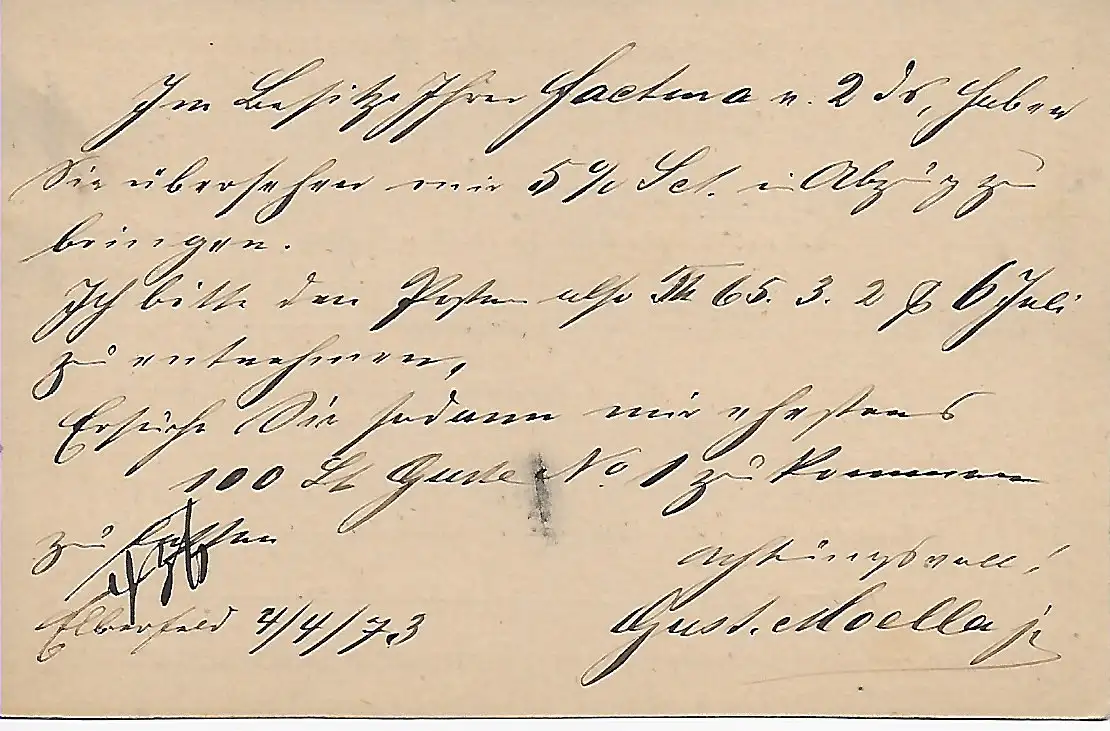 Im Besitze Ihrer Factura v. 2 ds, haben
Sie übersehen mir 5% Sct. in Abzug zu
bringen.
Ich bitte den Posten also 65. 3. 2 p 6 Juli
zu entnehmen,
Ersuche Sie sodann mir ehestens
100 St No. 1 zu kommen
zu lassen
achtungsvoll!
Elberfeld 4/4/73
Gust. Moella jr